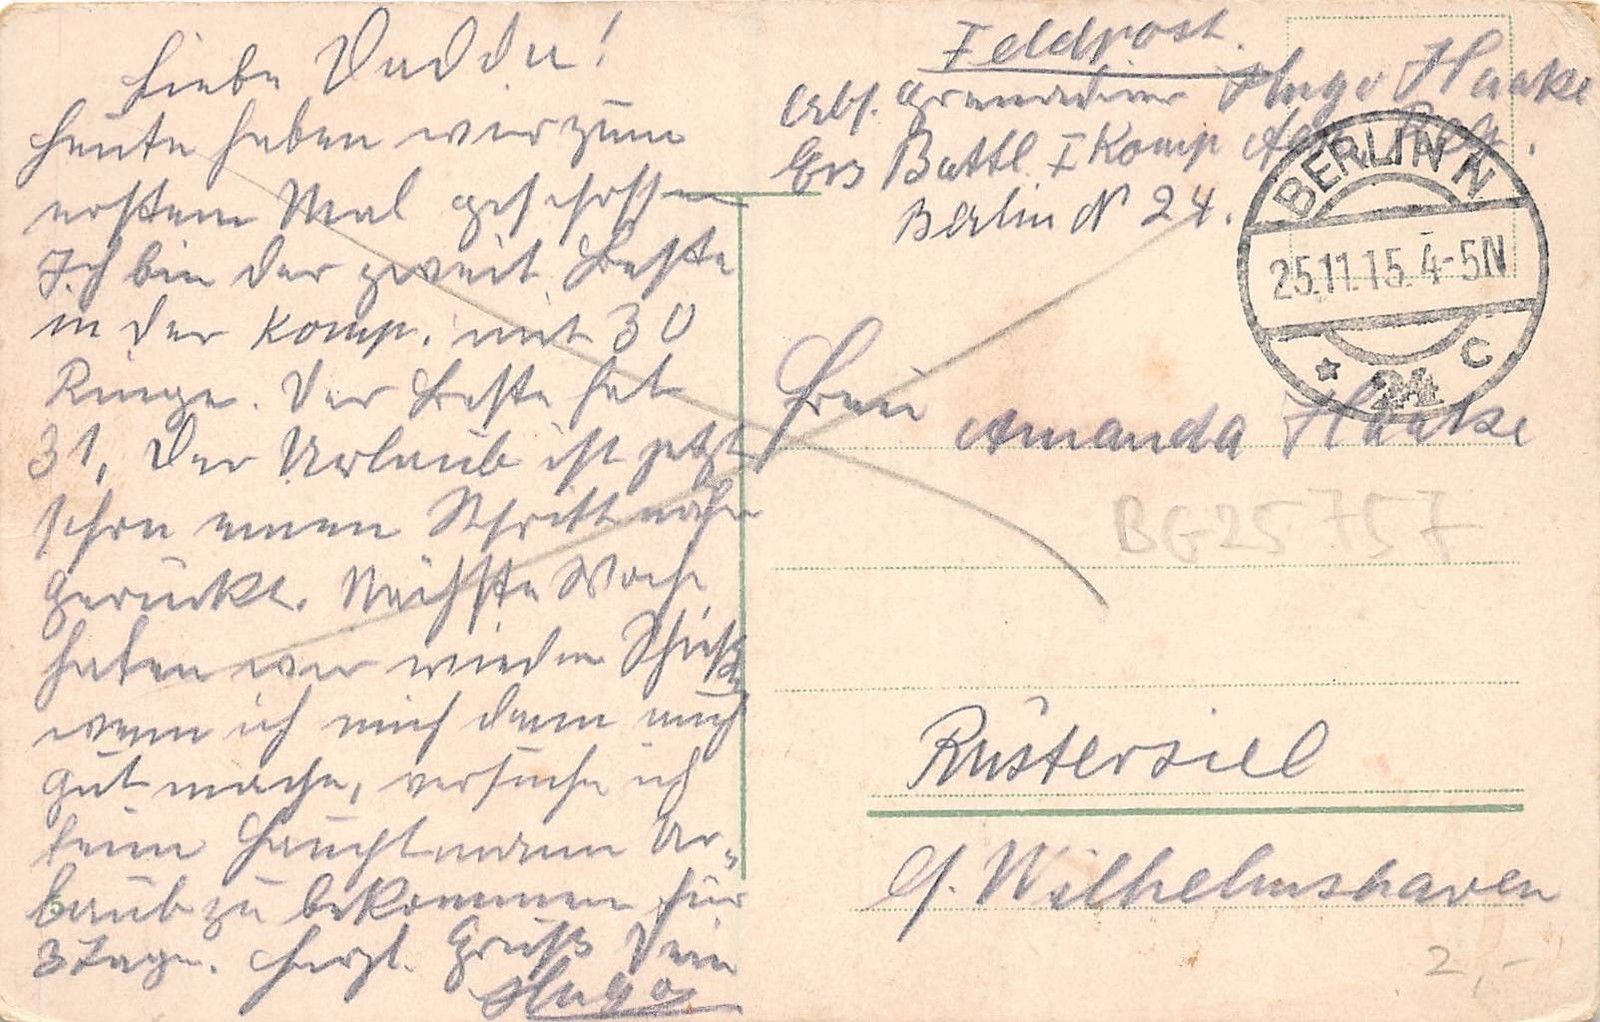 Liebe Dudda!
Heute haben wir zum
erstem Mal geschossen
Ich bin der zweit Beste
in der Komp. mit 30
Ringe. Der Beste hat
31. Der Urlaub ist jetzt
schon einen Schritt näher
gerückt. Nächste Woche
haben wir wieder
wenn ich mich dann auch
gut mache, versuche ich
beim Hauptmann Ur-
laub zu bekommen für
3 Tage. Herzl. Gruß Dein
Hugo
Feldpost.
Abs. Grenadier Hugo Haake
Ers Battl. I Komp
Berlin N 24.
BERLIN N
25.11.15. 4-5N
* 24 c
Frau
Amanda Haake
BG25757
Rüstersiel
b/. Wilhelmshaven
2,-